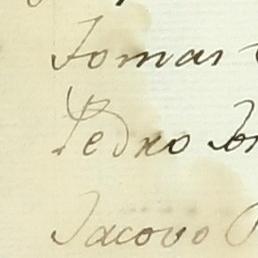 Tomas
Pedro
Jacovo